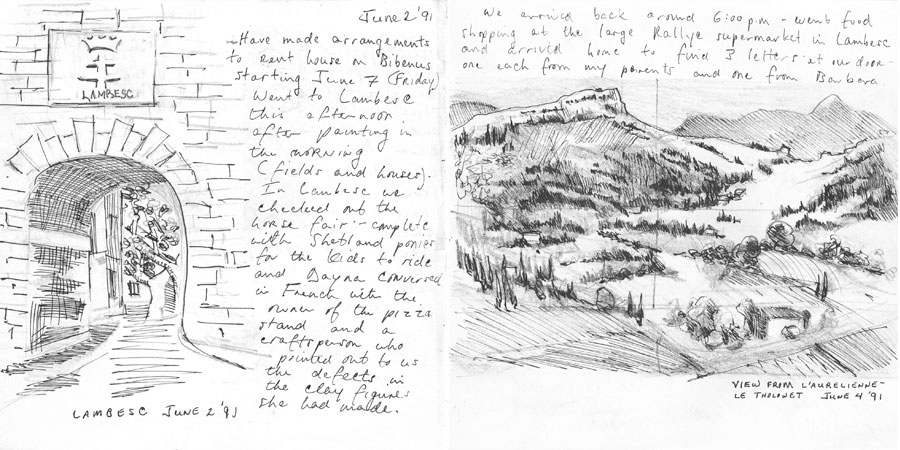 LAMBESC
June 2 '91
Have made arrangements
to rent house on Bibemus
starting June 7 (Friday)
Went to Lambesc
this afternoon
after painting in
the morning
(fields and houses).
In Lambesc we
checked out the
horse fair - complete
with Shetland ponies
for the kids to ride
and Dayna conversed
in French with the
owner of the pizza
stand and a
craftsperson who
pointed out to us
the defects in
the clay figures
she had made.
LAMBESC JUNE 2 '91
We arrived back around 6:00 p.m - went food
shopping at the large Rallye supermarket in Lambesc
and arrived home to find 3 letters at our door -
one each from my parents and one from Barbara
VIEW FROM L'AURELIENNE -
LE THOLONET JUNE 4 '91